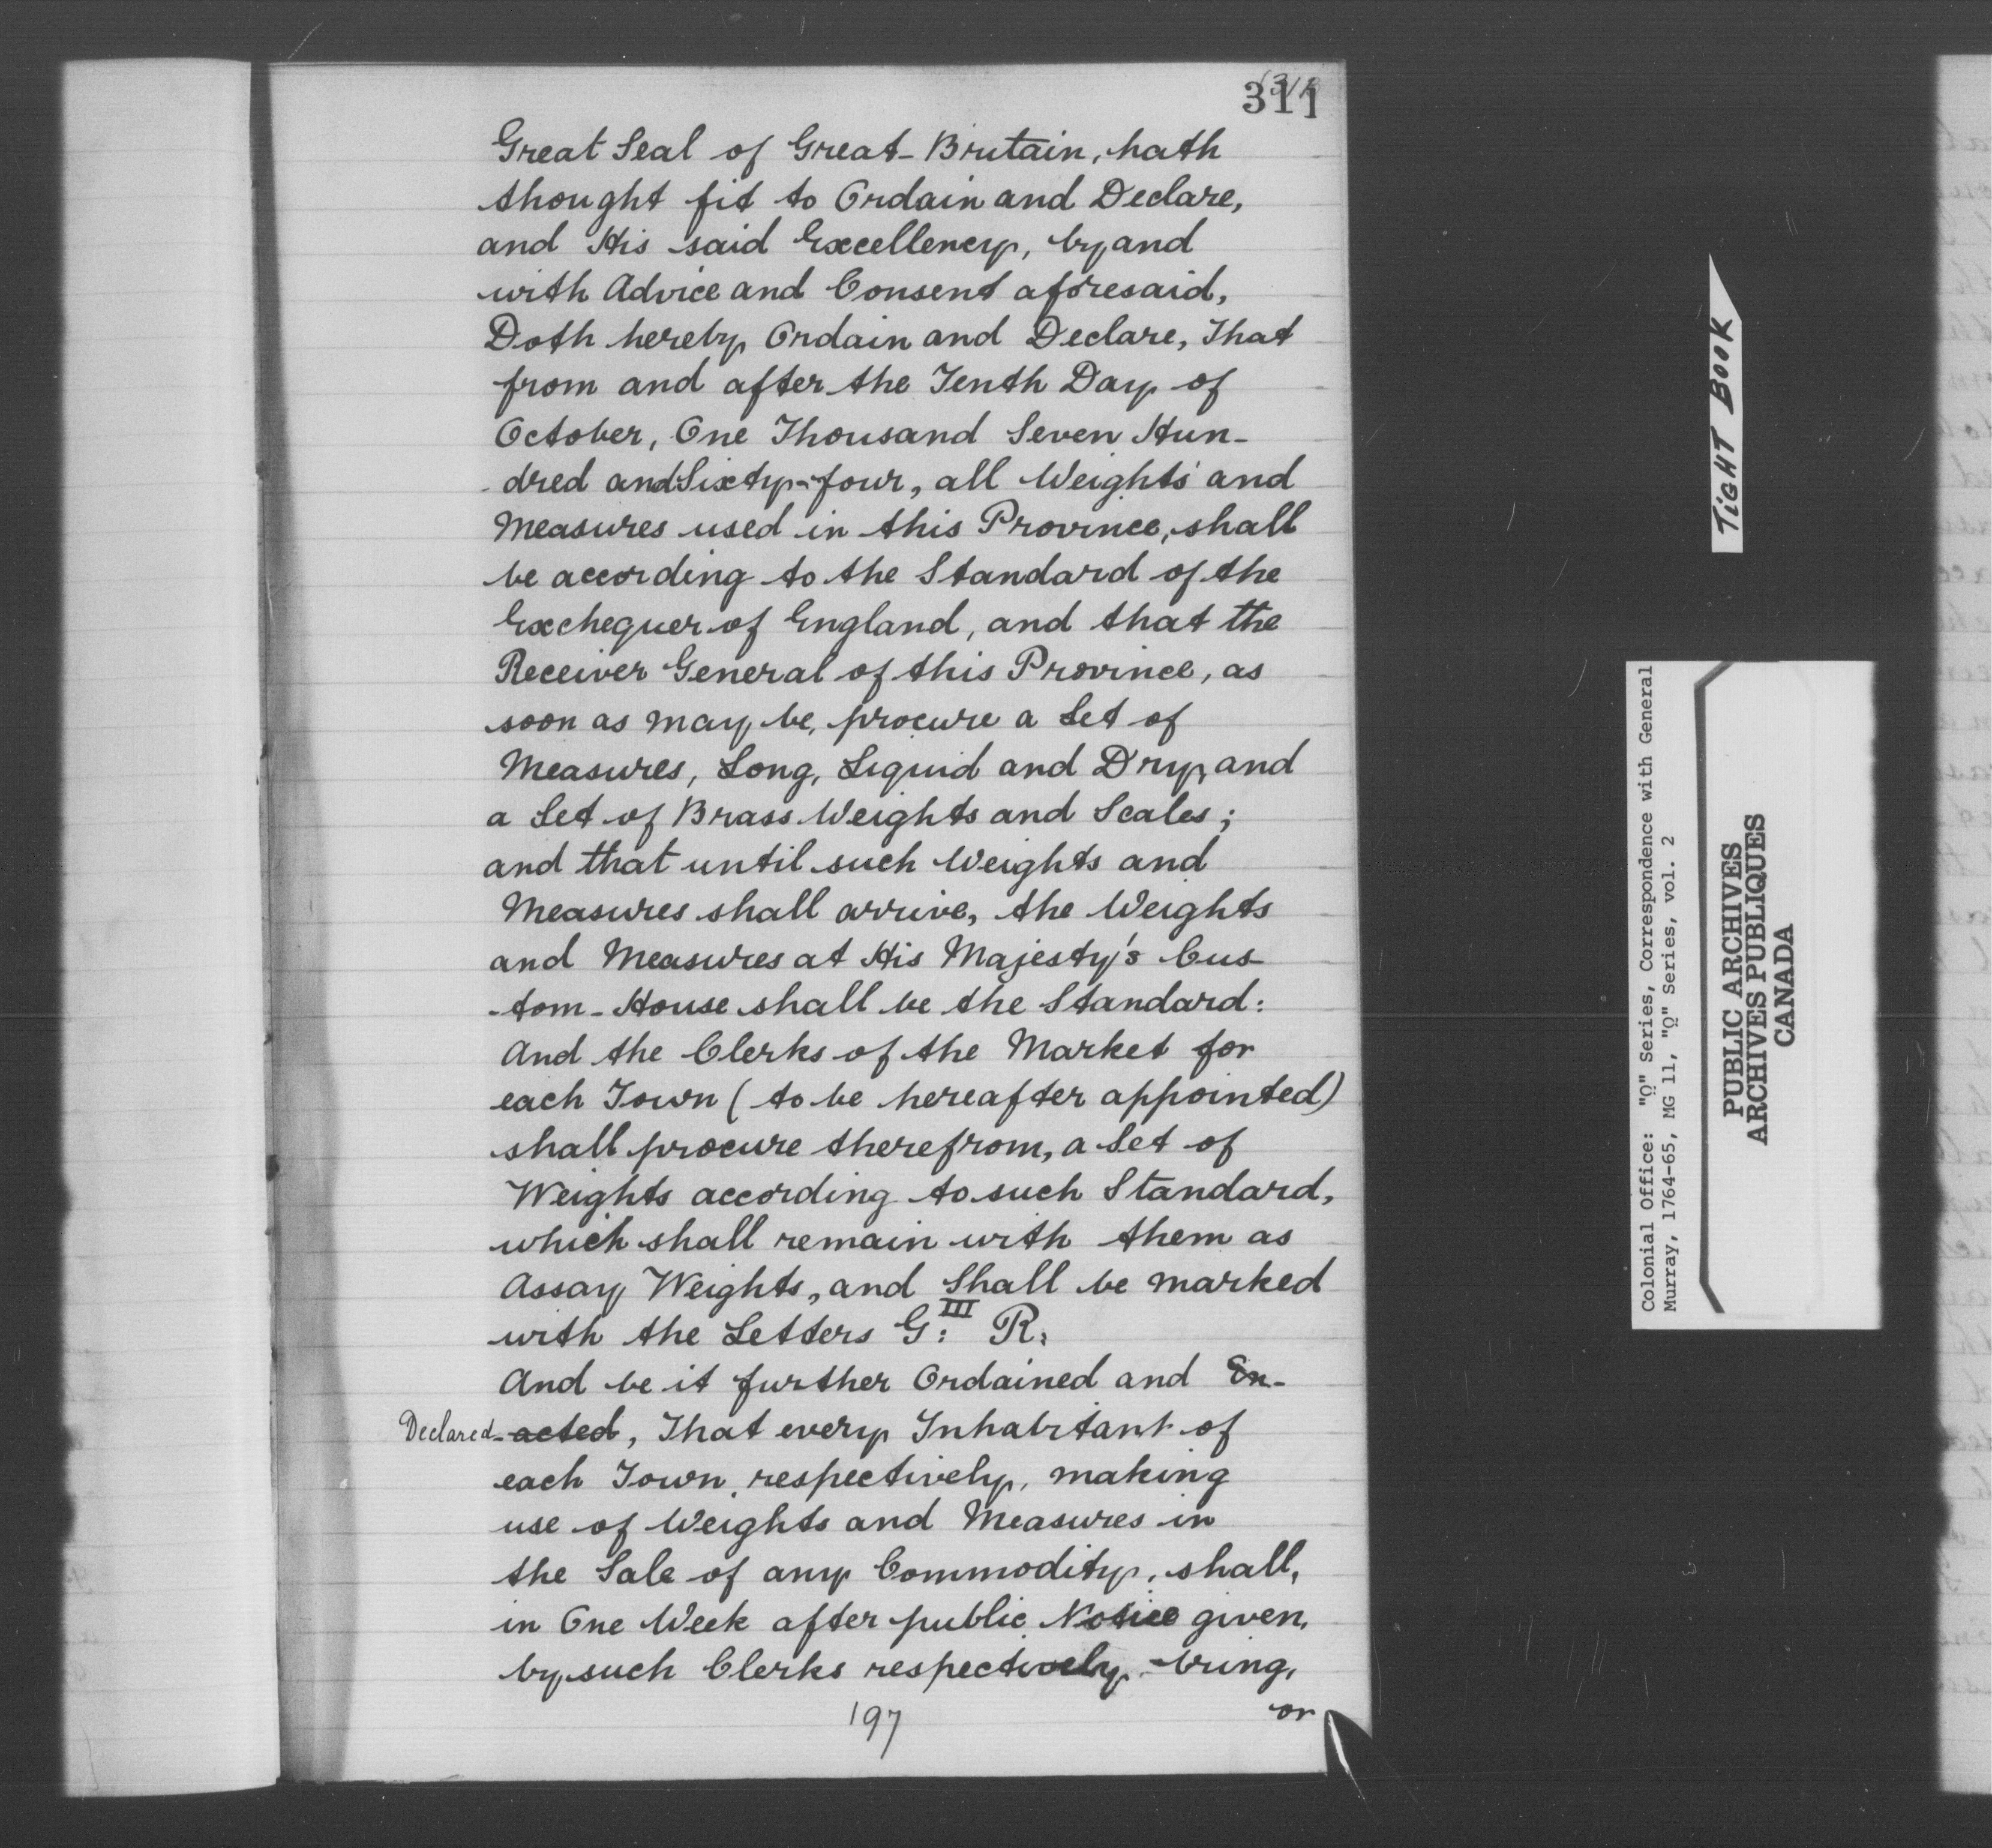 311
Great Seal of Great-Britain, hath
thought fit to Ordain and Declare,
and His said Excellency, by and
with Advice and Consent aforesaid,
Doth hereby Ordain and Declare, That
from and after the Tenth Day of
October, One Thousand Seven Hun-
-dred and Sixty-four, all Weights and
Measures used in this Province, shall
be according to the Standard of the
Exchequer of England, and that the
Receiver General of this Province, as
soon as may be, procure a Set of
Measures, Long, Liquid and Dry, and
a Set of Brass Weights and Scales;
and that until such Weights and
Measures shall arrive, the Weights
and Measures at His Majesty's Cus-
-tom-House shall be the Standard:
And the Clerks of the Market for
each Town (to be hereafter appointed)
shall procure therefrom, a Set of
Weights according to such Standard,
which shall remain with them as
Assay Weights, and Shall be marked
with the Letters G: III R:
And be it further Ordained and En-
Declared -acted, That every Inhabitant of
each Town, respectively, making
use of Weights and Measures in
the Sale of any Commodity, shall,
in One Week after public Notice given,
by such Clerks respectively, bring,
or
197
TIGHT BOOK
Colonial Office: "Q" Series, Correspondence with General
Murray, 1764-65, MG 11, "Q" Series, vol. 2
PUBLIC ARCHIVES
ARCHIVES PUBLIQUES
CANADA